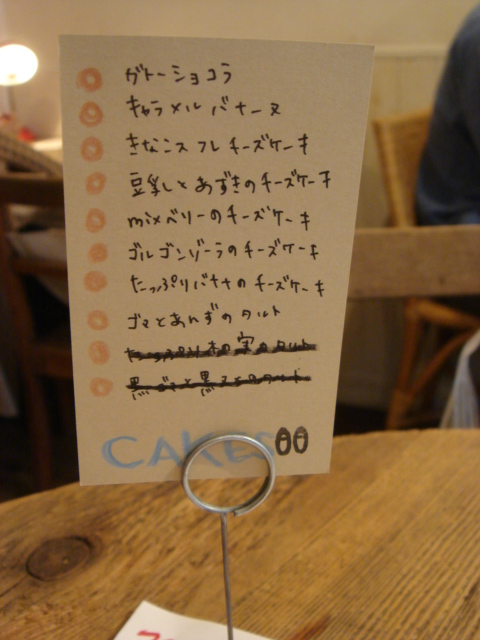 ガトーショコラ
キャラメルバナーヌ
きなこスフレチーズケーキ
豆乳とあずきのチーズケーキ
mixベリーのチーズケーキ
ゴルゴンゾーラのチーズケーキ
たっぷりバナナのチーズケーキ
ゴマとあんずのタルト
たっぷり木の実のタルト
CAKES